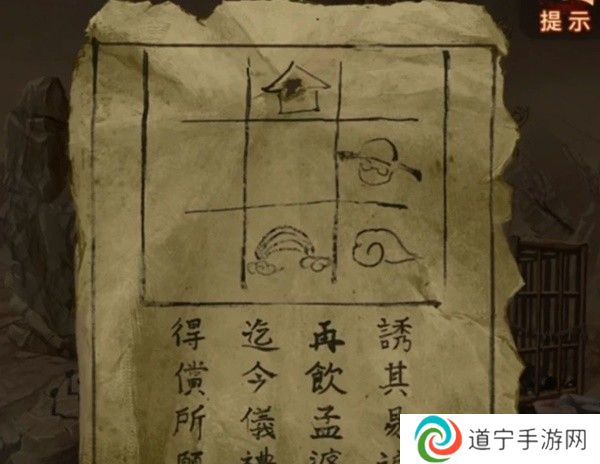 提示
誘其易
再飲孟婆
迄今儀禮
得償所願
道宁手游网